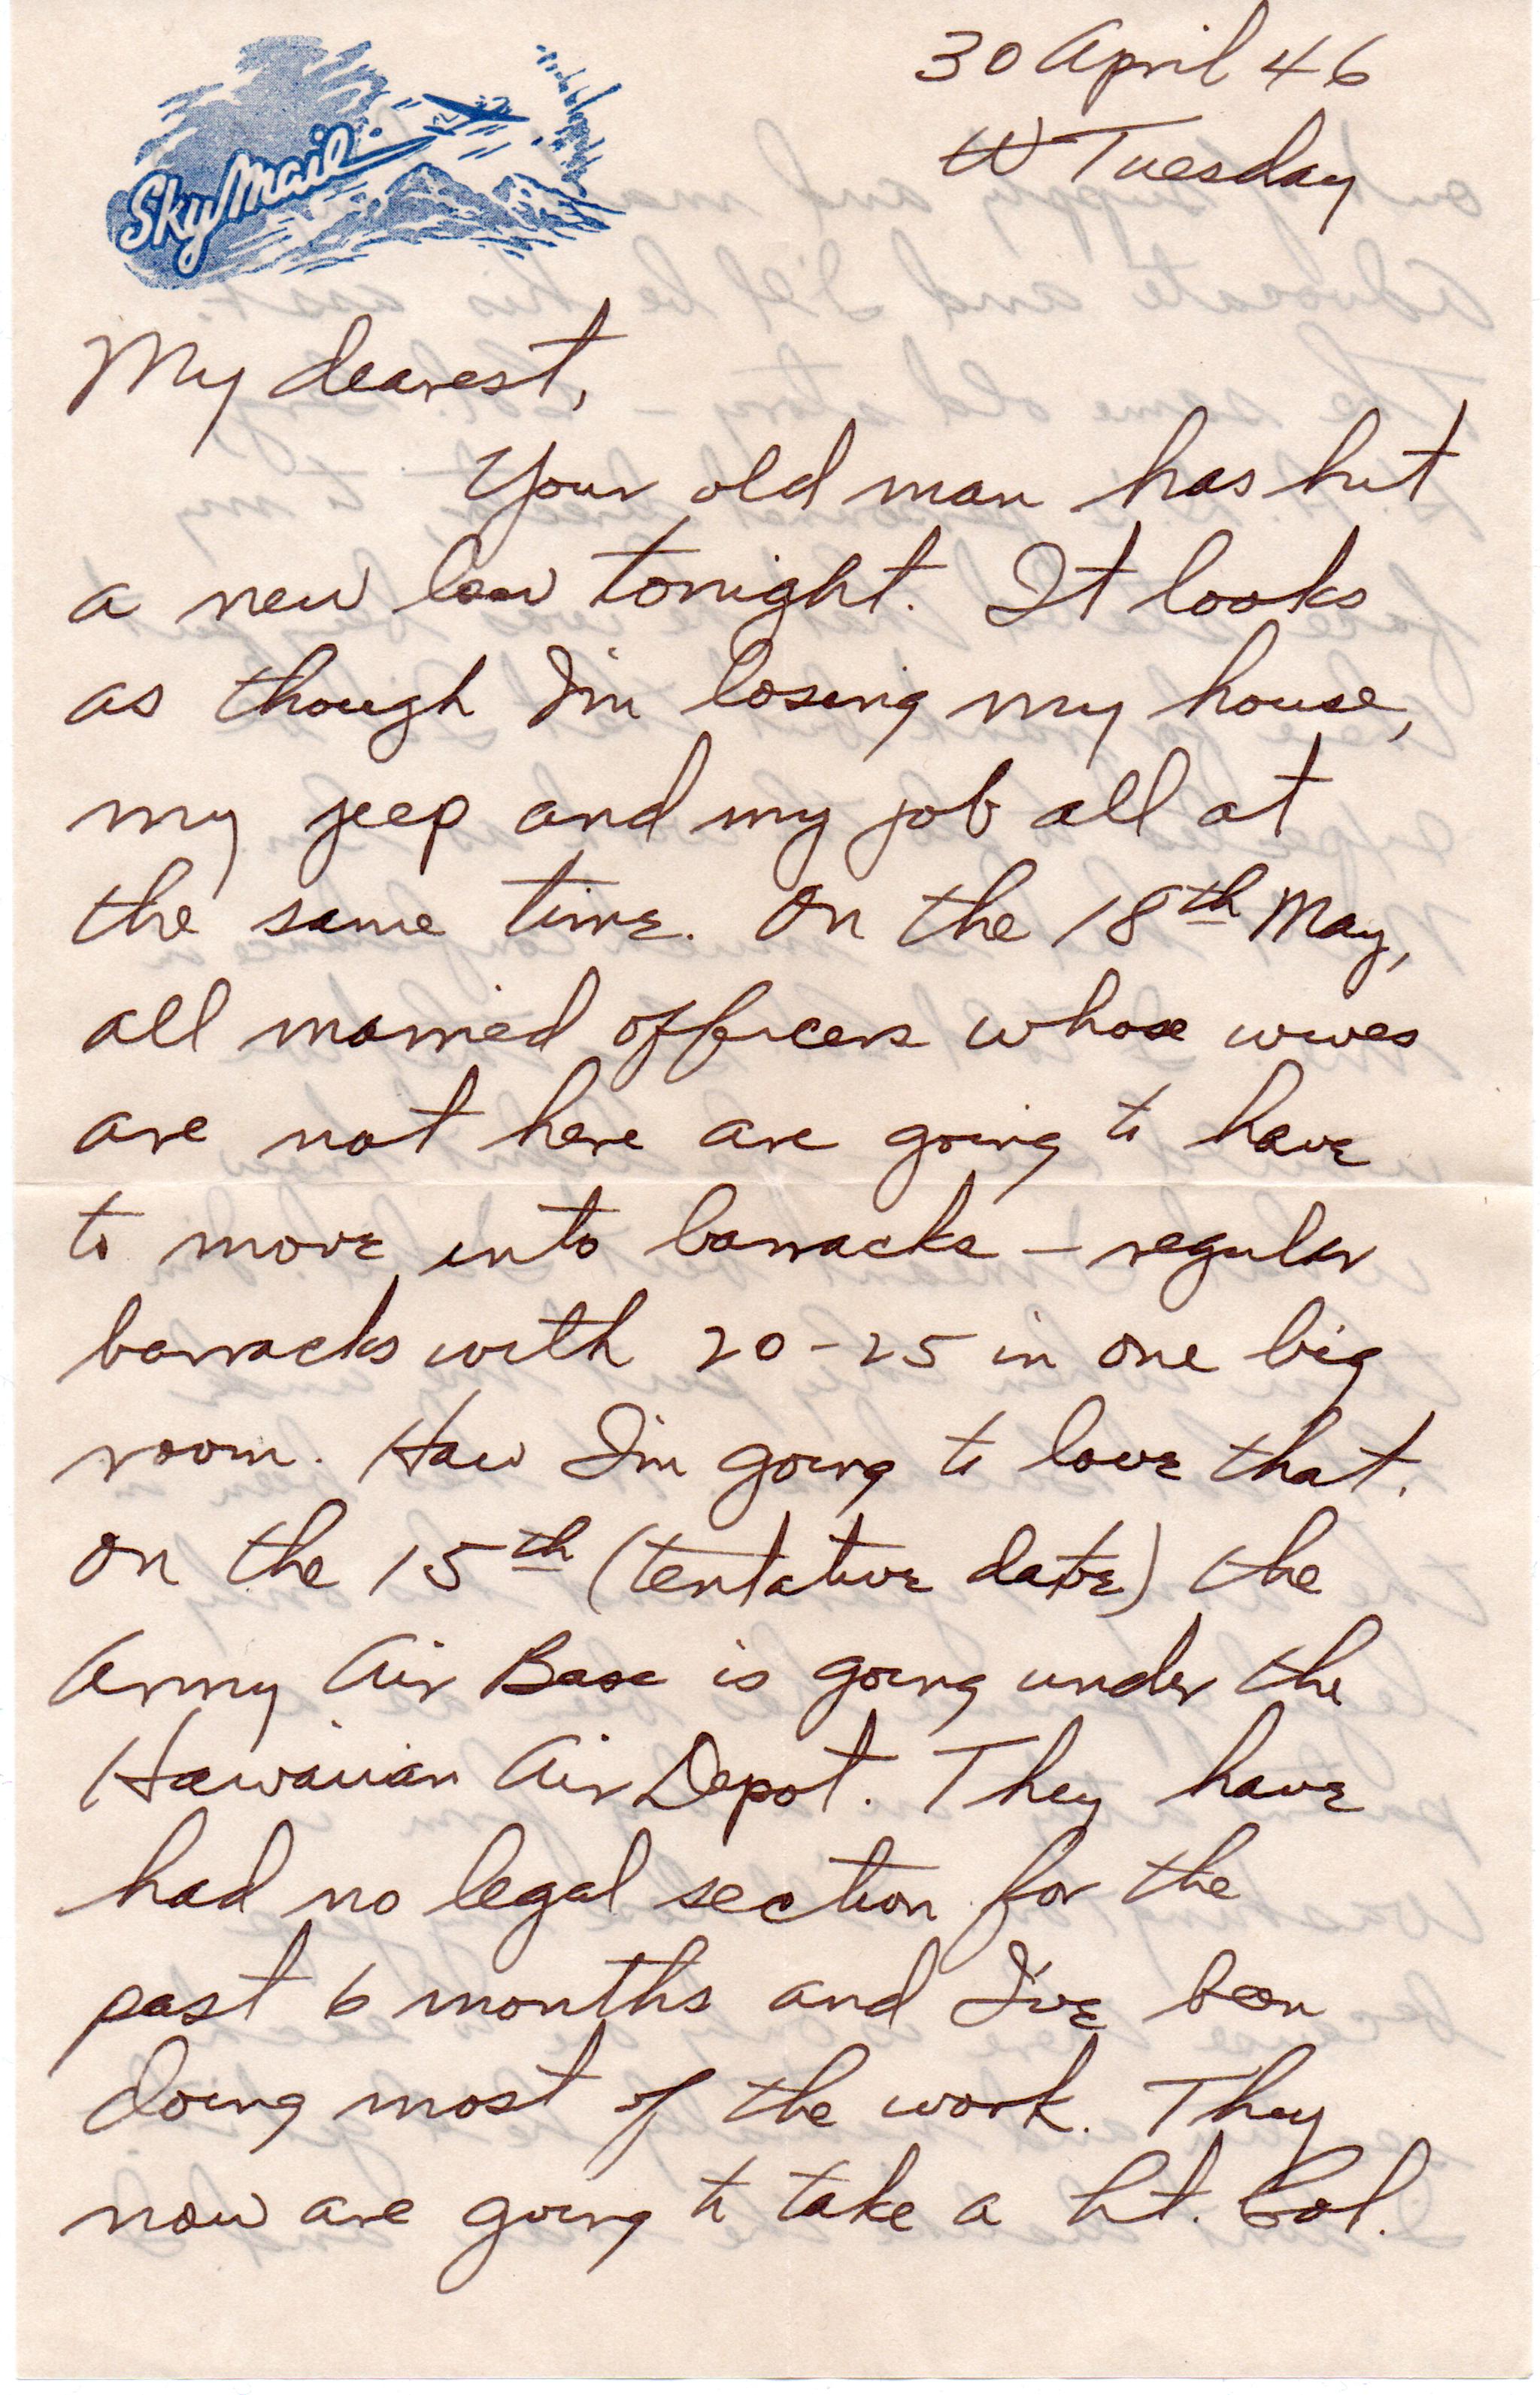 Sky Mail
30 April 46
W Tuesday
My dearest,
Your old man has hit
a new low tonight. It looks
as though I'm losing my house,
my jeep and my job all at
the same time. On the 18th May,
all married officers whose wives
are not here are going to have
to move into barracks – regular
barracks with 20-25 in one big
room. How I'm going to love that.
On the 15th (tentative date) the
Army Air Base is going under the
Hawaiian Air Depot. They have
had no legal section for the
past 6 months and I've been
doing most of the work. They
now are going to take a Lt. Col.